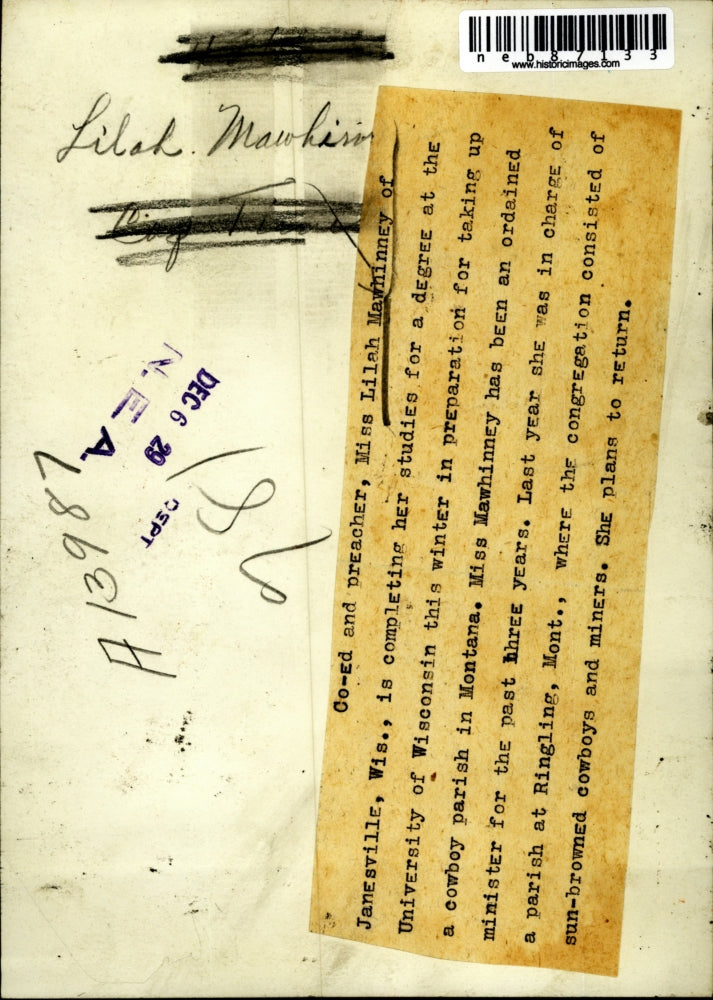 neb87133
www.historicimages.com
Lilah Mawhinn
DEC 6 29
N.E.A.
DEPT
A13987
Co-Ed and preacher, Miss Lilah Mawhinney of
Janesville, Wis., is completing her studies for a degree at the
University of Wisconsin this winter in preparation for taking up
a cowboy parish in Montana. Miss Mawhinney has been an ordained
minister for the past three years. Last year she was in charge of
a parish at Ringling, Mont., where the congregation consisted of
sun-browned cowboys and miners. She plans to return.